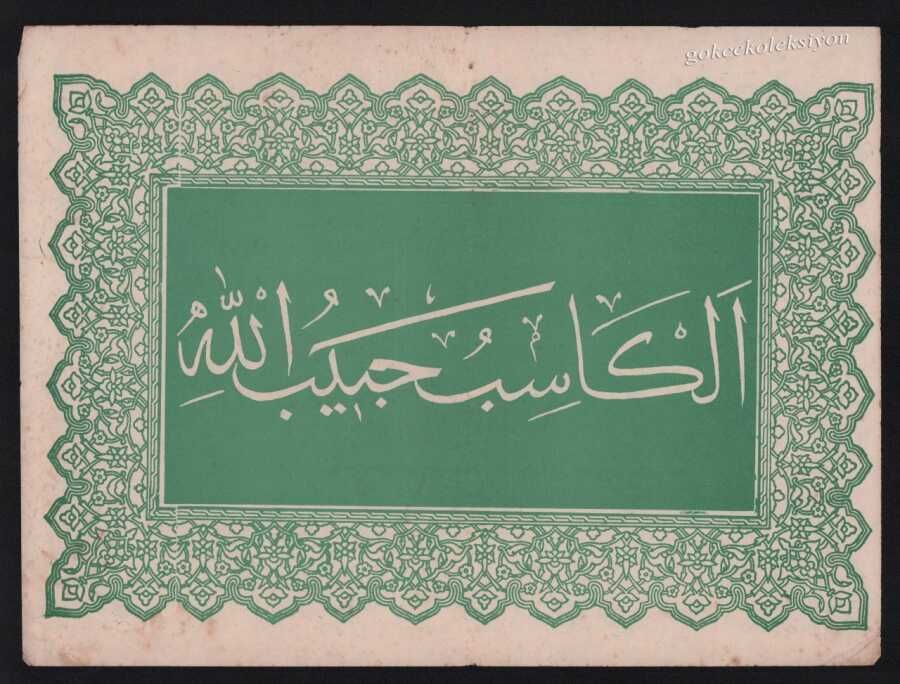 gokcekoleksiyon
اَلْكَاسِبُ حَبِيبُ اللّٰهِ